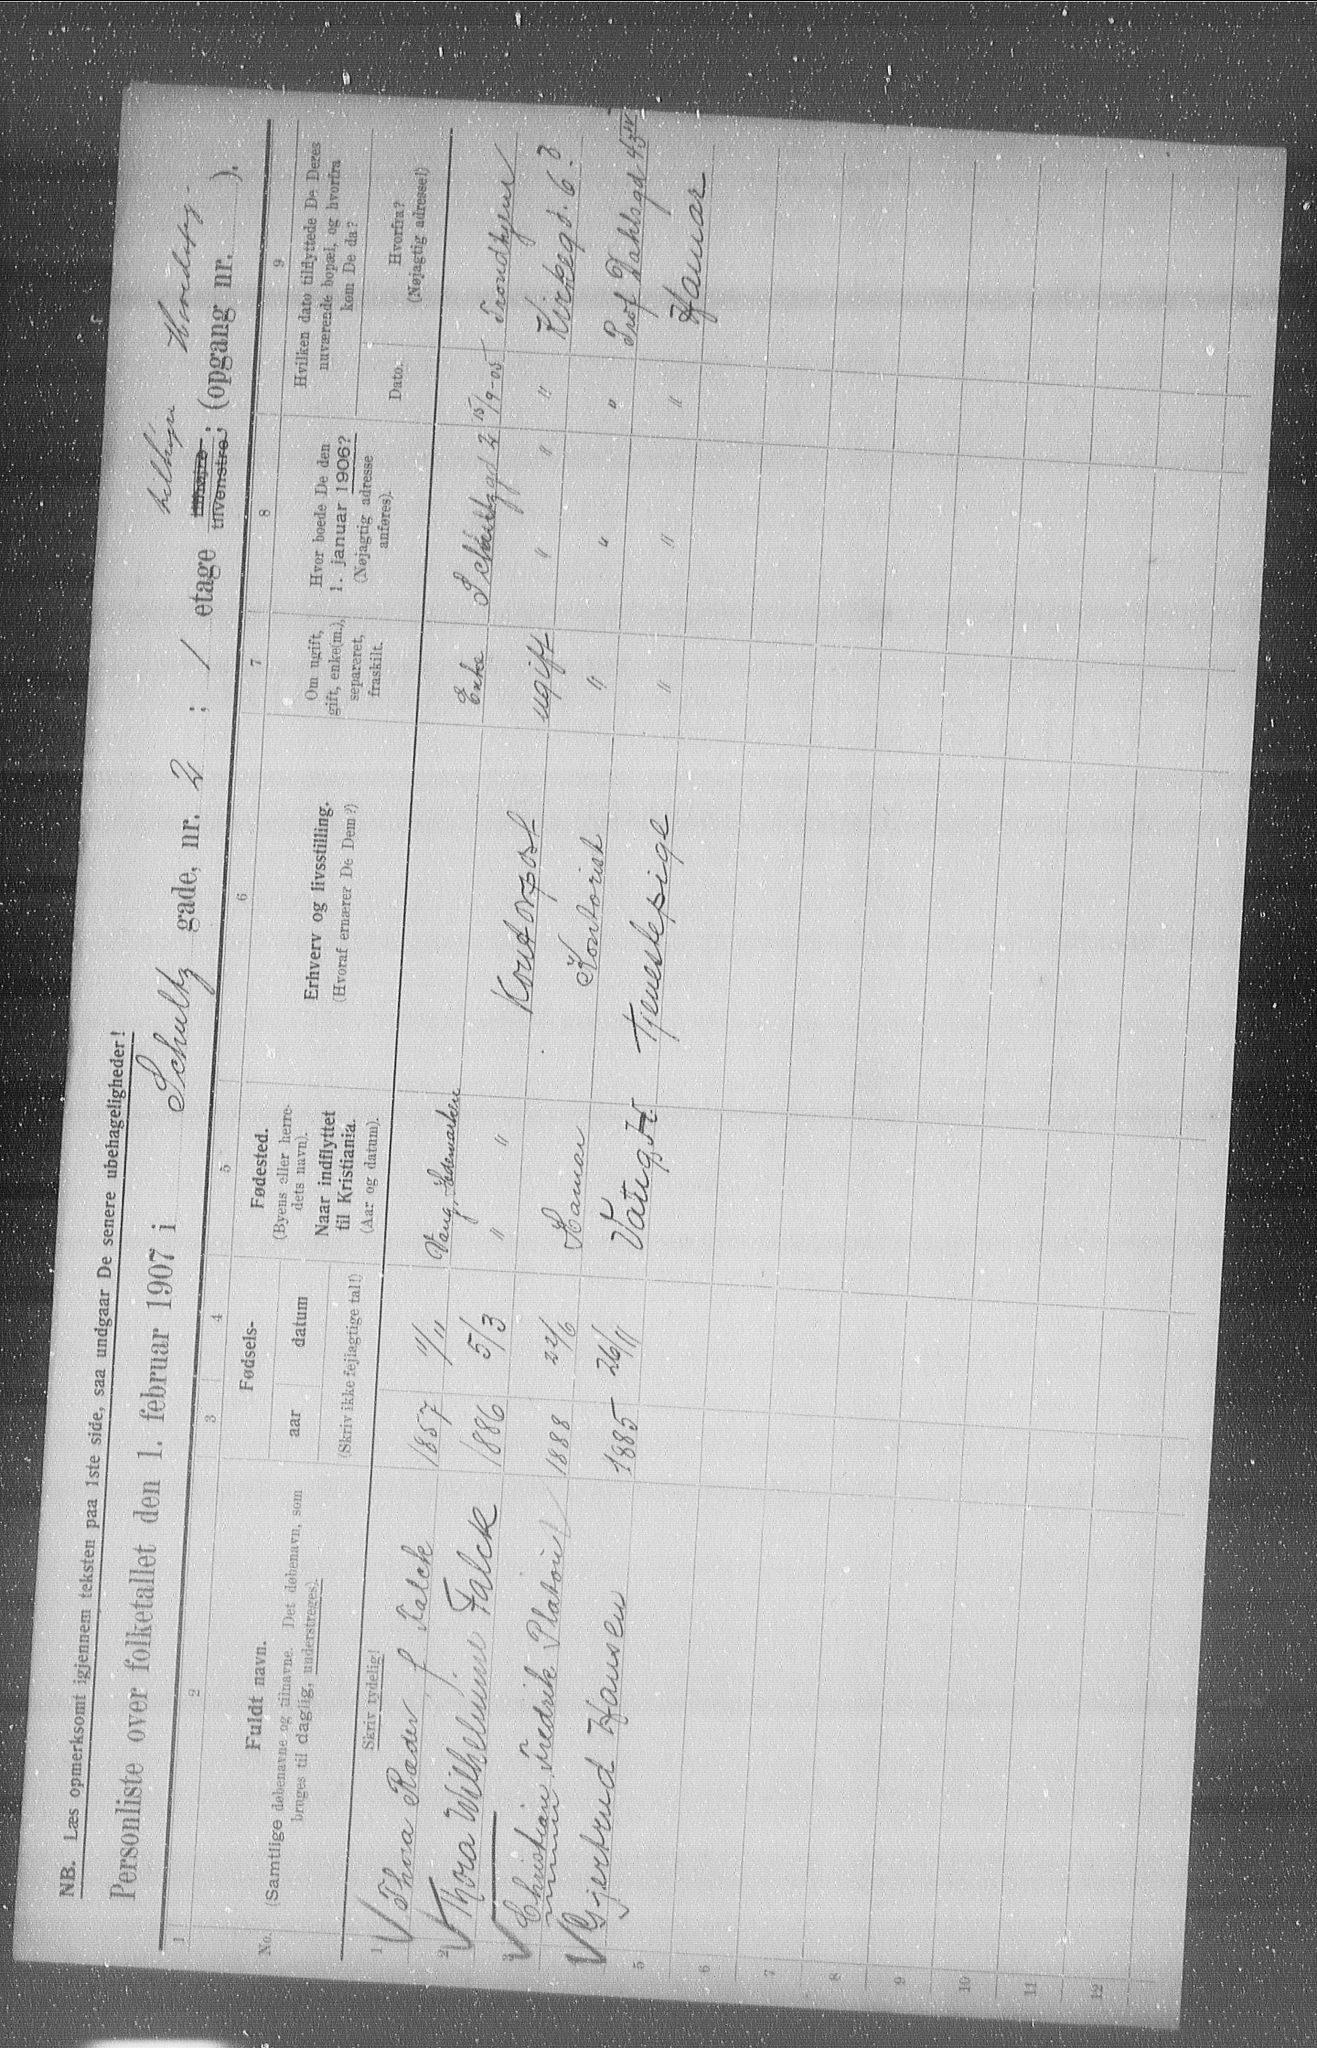 NB. Læs opmerksomt igjennem teksten paa 1ste side, saa undgaar De senere ubehageligheder!
Personliste over folketallet den 1. februar 1907 i Schultz gade, nr. 2; 1 etage tilhøire tilvenstre; (opgang nr. ).
1 2 3 4 5 6 7 8 9
No.
Fuldt navn.
(Samtlige døbenavne og tilnavne. Det døbenavn, som
bruges til daglig, understreges).
Skriv tydelig!
Fødsels-
aar datum
(Skriv ikke feilagtige tal!)
Fødested.
(Byens eller herre-
dets navn).
Naar indflyttet
til Kristiania.
(Aar og datum).
Erhverv og livsstilling.
(Hvoraf ernærer De Dem?)
Om ugift,
gift, enke(m.),
separeret,
fraskilt.
Hvor boede De den
1. januar 1906?
(Nøjagtig adresse
anføres).
Hvilken dato tilflyttede De Deres
nuværende bopæl, og hvorfra
kom De da?
Dato.
Hvorfra?
(Nøjagtig adresse!)
1 Thora Ræder f. Falck 1857 11/11 Vang, Hedemarken Enke Schultzgd 2 15/9-05 Trondhjem
2 Thora Wilhelmine Falck 1886 5/3 " " Kontorpost ugift " " " Kirkegd. 6.
3 Christian Fredrik Platou 1888 22/6 Hamar Kontorist " " " Prof Dahlsgd 43 IV
Gjertrud Hansen 1885 26/11 Vang Tjenestepige " " " Hamar
5
6
7
8
9
10
11
12